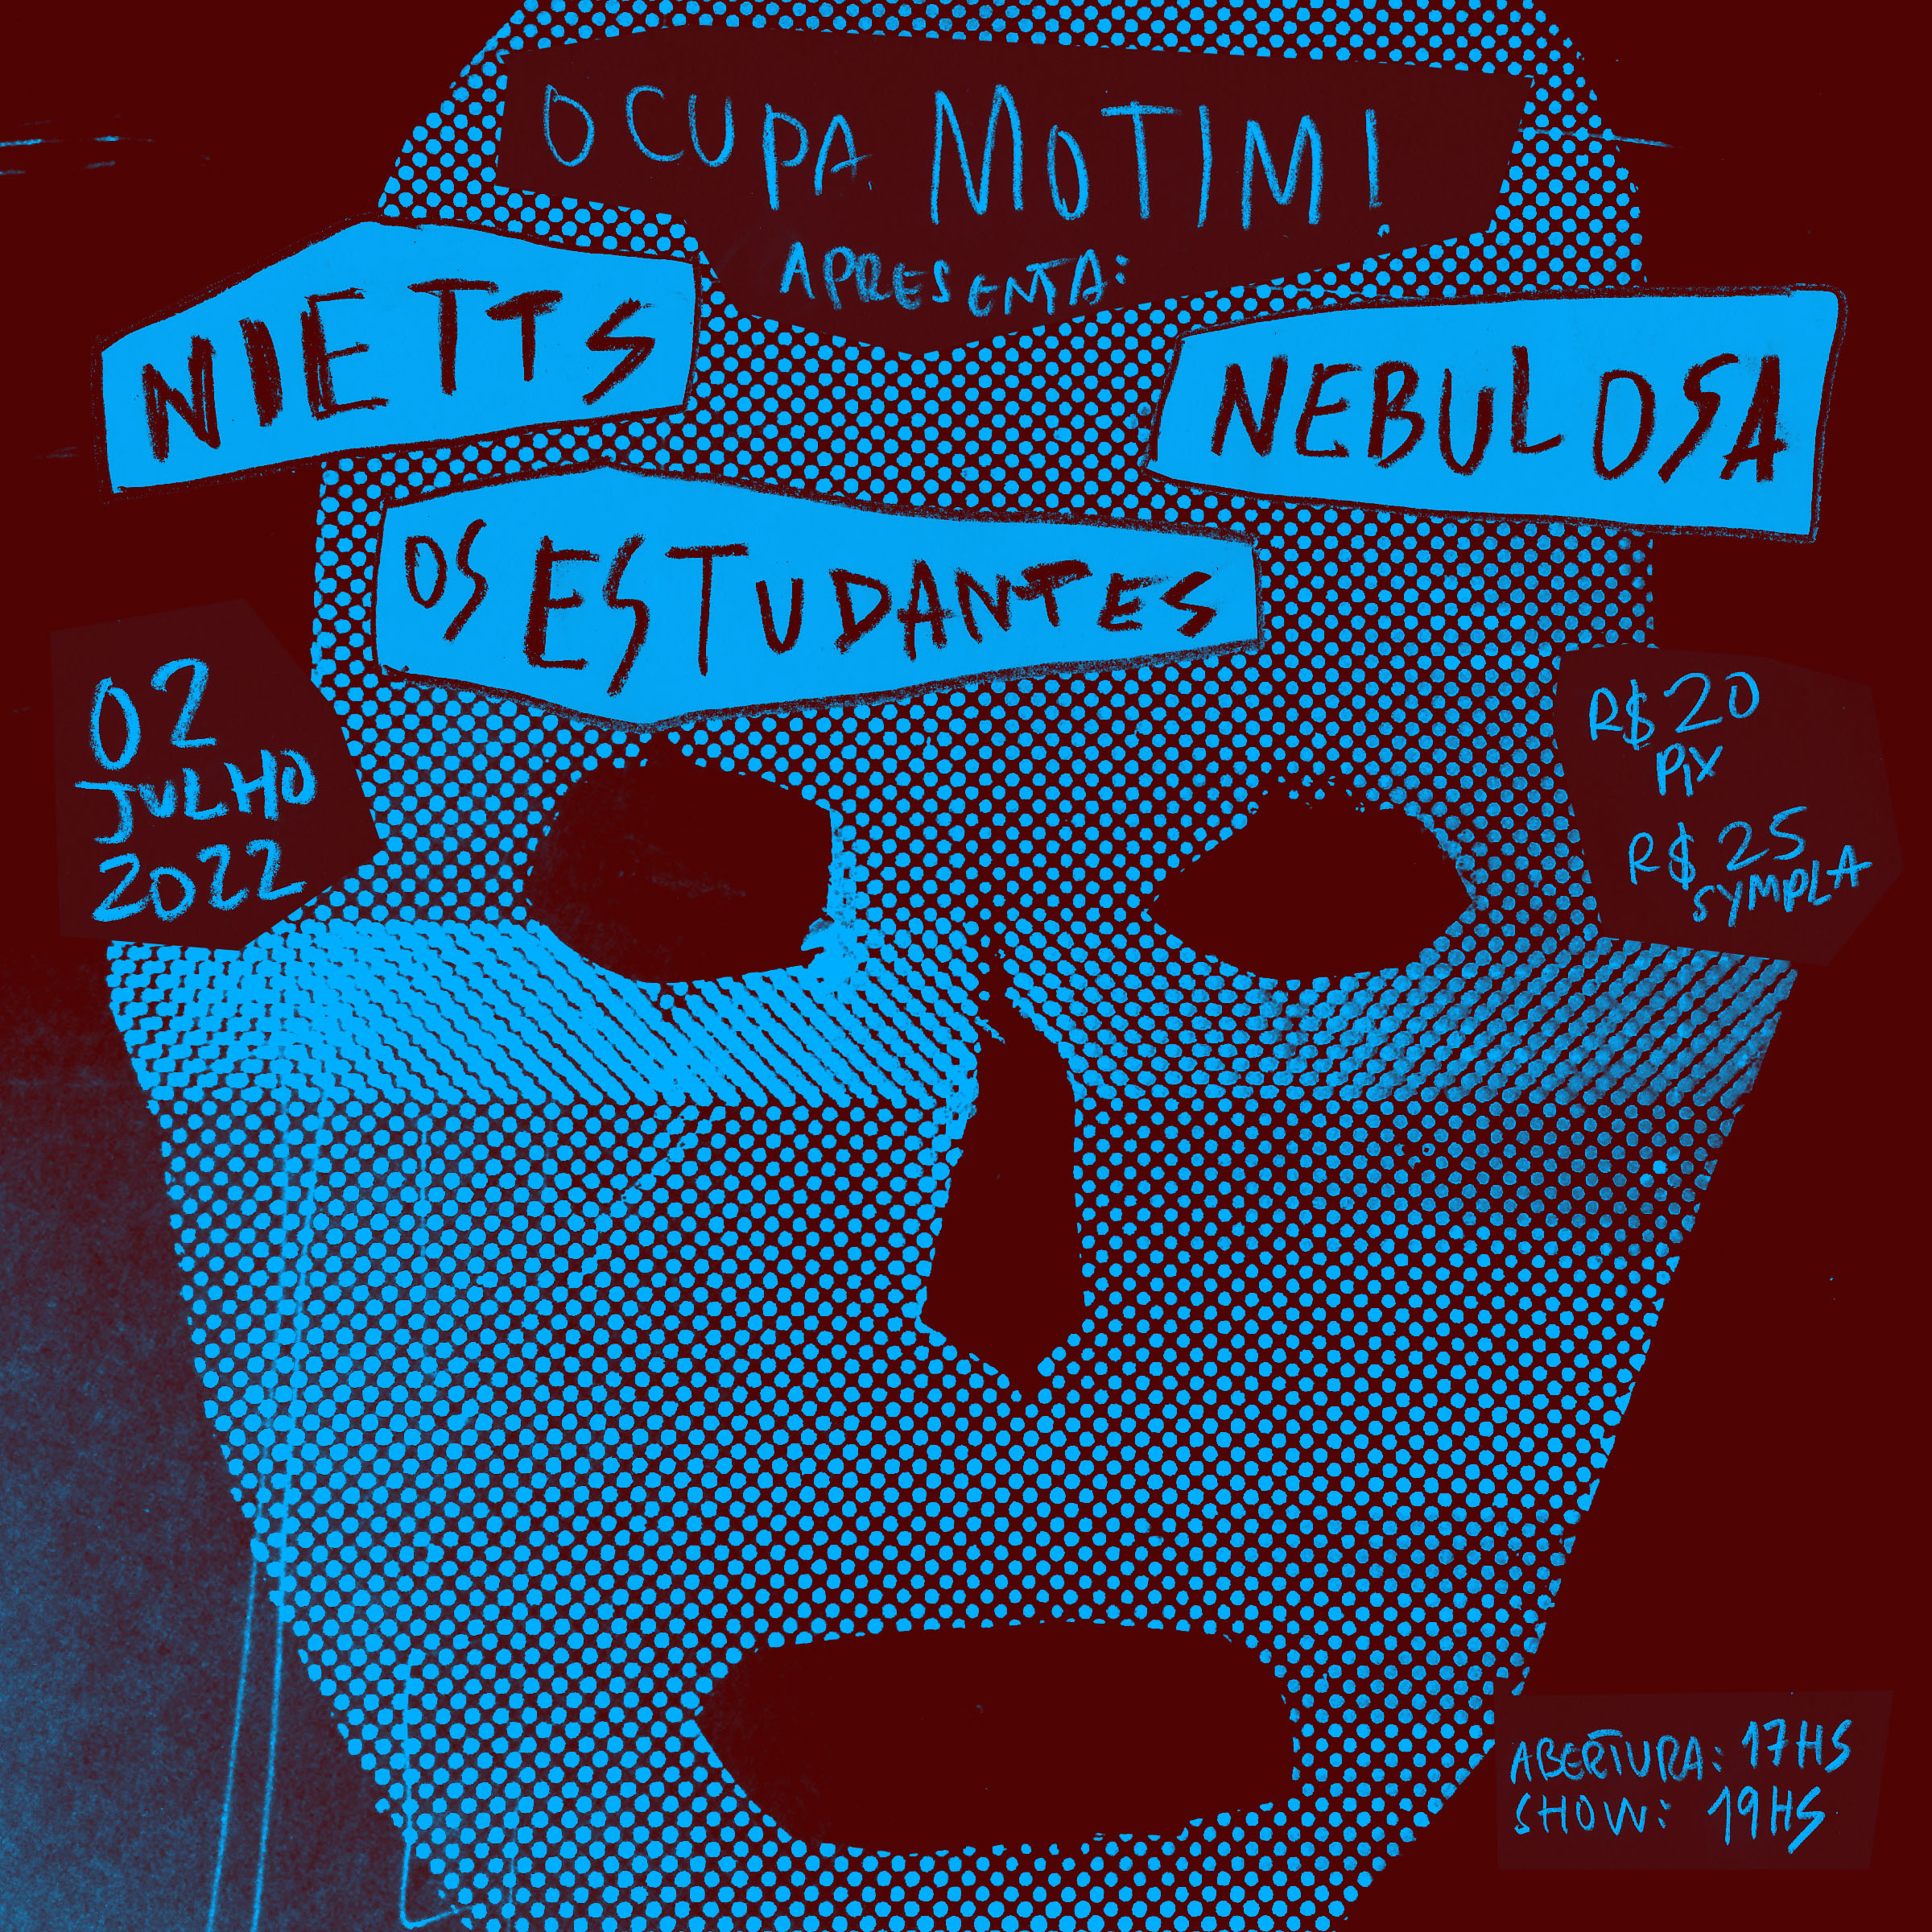 OCUPA MOTIM!
APRESENTA:
NIETTS
NEBULOSA
OS ESTUDANTES
02
JULHO
2022
R$ 20
PIX
R$ 25
SYMPLA
ABERTURA: 17HS
SHOW: 19HS